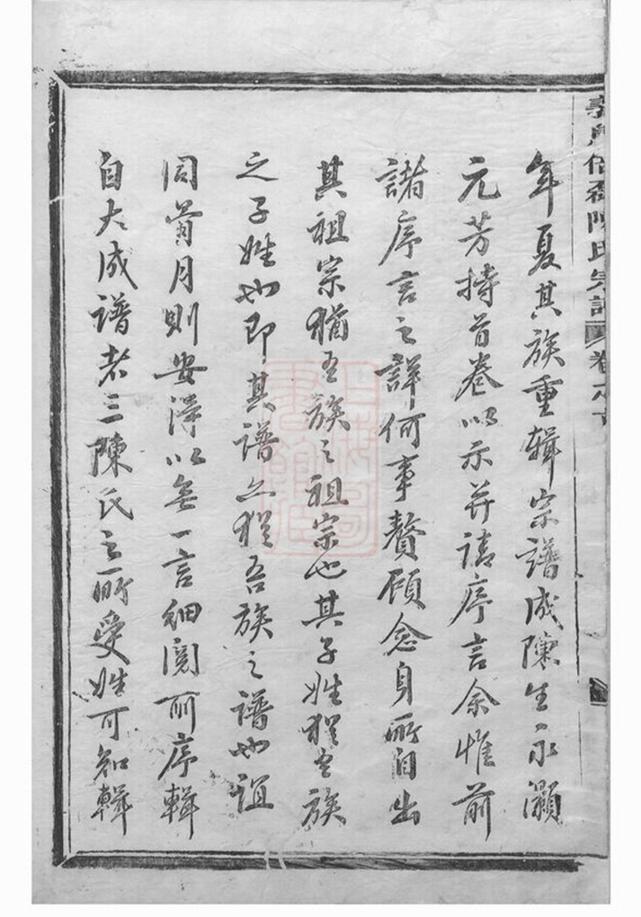 年夏其族重輯宗譜成陳生永灝
元芳持首卷以示并請序言余惟前
諸序言之詳何事贅顧念身所自出
其祖宗猶吾族之祖宗也其子姓猶吾族
之子姓也即其譜亦猶吾族之譜也誼
同月則安得以無一言細閱所序輯
自大成譜者三陳氏之所受姓可知輯
陳氏宗譜 卷之首